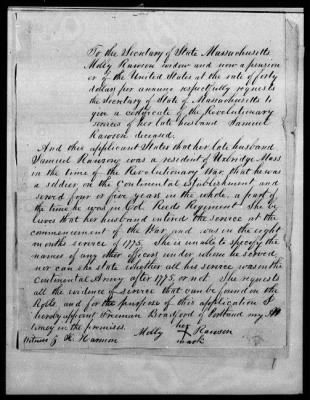 To the Secretary of State Massachusetts
Molly Rawson widow and now a pension
er of the United States at the rate of forty
dollars per annum respectfully requests
the Secretary of State of Massachusetts to
give a certificate of the Revolutionary
services of her late husband Samuel
Rawson deceased.
And this applicant States that her late husband
Samuel Rawson, was a resident of Uxbridge Mass
in the time of the Revolutionary War, that he was
a soldier on the continental establishment, and
served four or five years on the whole. a part of
the time he was in Col. Reeds Regiment. She be
lieves that her husband entered the service at the
commencement of the War, and was in the eight
months service of 1775. She is unable to specify the
names of any other officers under whom he served,
nor can she state whether all his service was in the
continental Army after 1775. or not. She requests
all the evidence of service that can be found on the
Rolls and for the purposes of this application I
hereby appoint Freeman Bradford of Portland my At
torney in the premises.
her
Molly X Rawson
mark
Witness Z K. Harmon